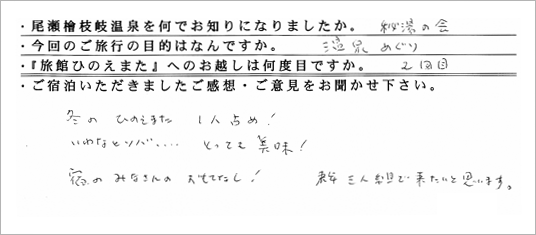 ・尾瀬檜枝岐温泉を何でお知りになりましたか。 秘湯の会
・今回のご旅行の目的はなんですか。 温泉めぐり
・『旅館ひのえまた』へのお越しは何度目ですか。 2回目
・ご宿泊いただきましたご感想・ご意見をお聞かせ下さい。
冬の ひのえまた 1人占め!
いわなとソバ‥‥ とっても美味!
宿のみなさんのおもてなし! 来年三人組で来たいと思います。